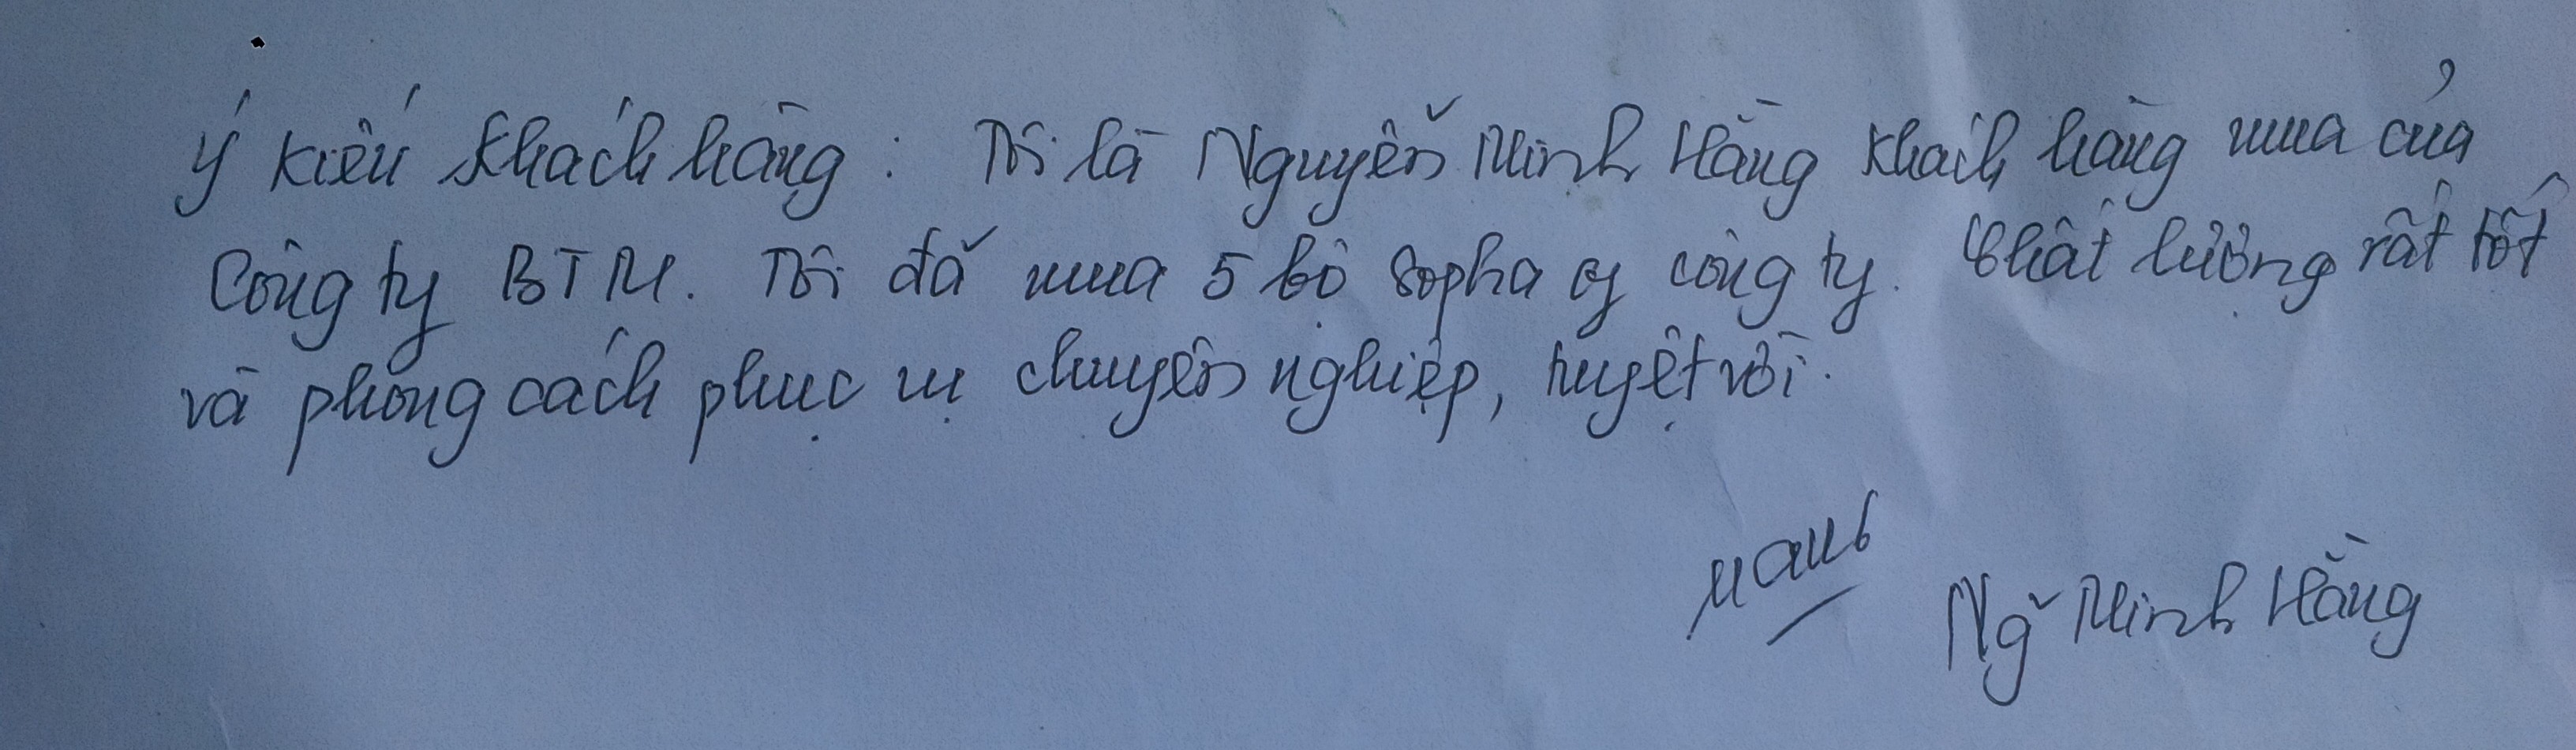 Ý kiến khách hàng : Tôi là Nguyễn Minh Hằng khách hàng mua của
Công ty BTM. Tôi đã mua 5 bộ sopha cty công ty. Chất lượng rất tốt
và phong cách phục vụ chuyên nghiệp, tuyệt vời.
Ng Minh Hằng